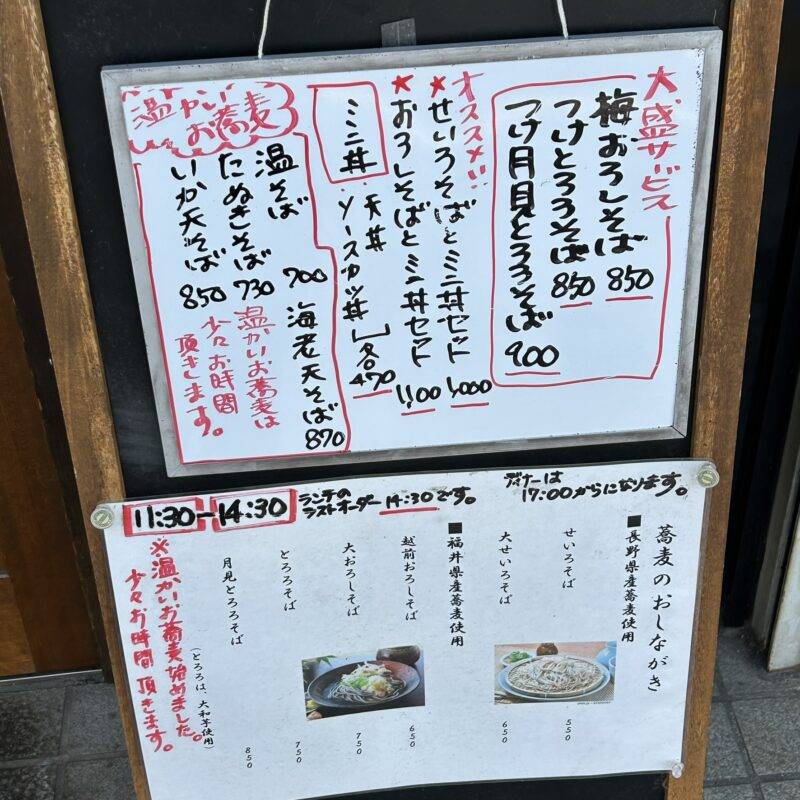 大盛サービス
梅おろしそば 850
つけとろろそば 850
つけ月見とろろそば 900
オススメ!!
★せいろそばとミニ丼セット 1,000
★おろしそばとミニ丼セット 1,100
ミニ丼
・天丼
・ソースカツ丼
各470
温かいお蕎麦
温そば 700
たぬきそば 730
いか天そば 850
海老天そば 870
温かいお蕎麦は
少々お時間
頂きます。
11:30-14:30
ランチの
ラストオーダー14:30です。
ディナーは
17:00からになります。
蕎麦のおしながき
■長野県産蕎麦使用
せいろそば 550
大せいろそば 650
■福井県産蕎麦使用
越前おろしそば 650
大おろしそば 750
とろろそば 750
月見とろろそば 850
(とろろは、大和芋使用)
※温かいお蕎麦始めました。
少々お時間頂きます。